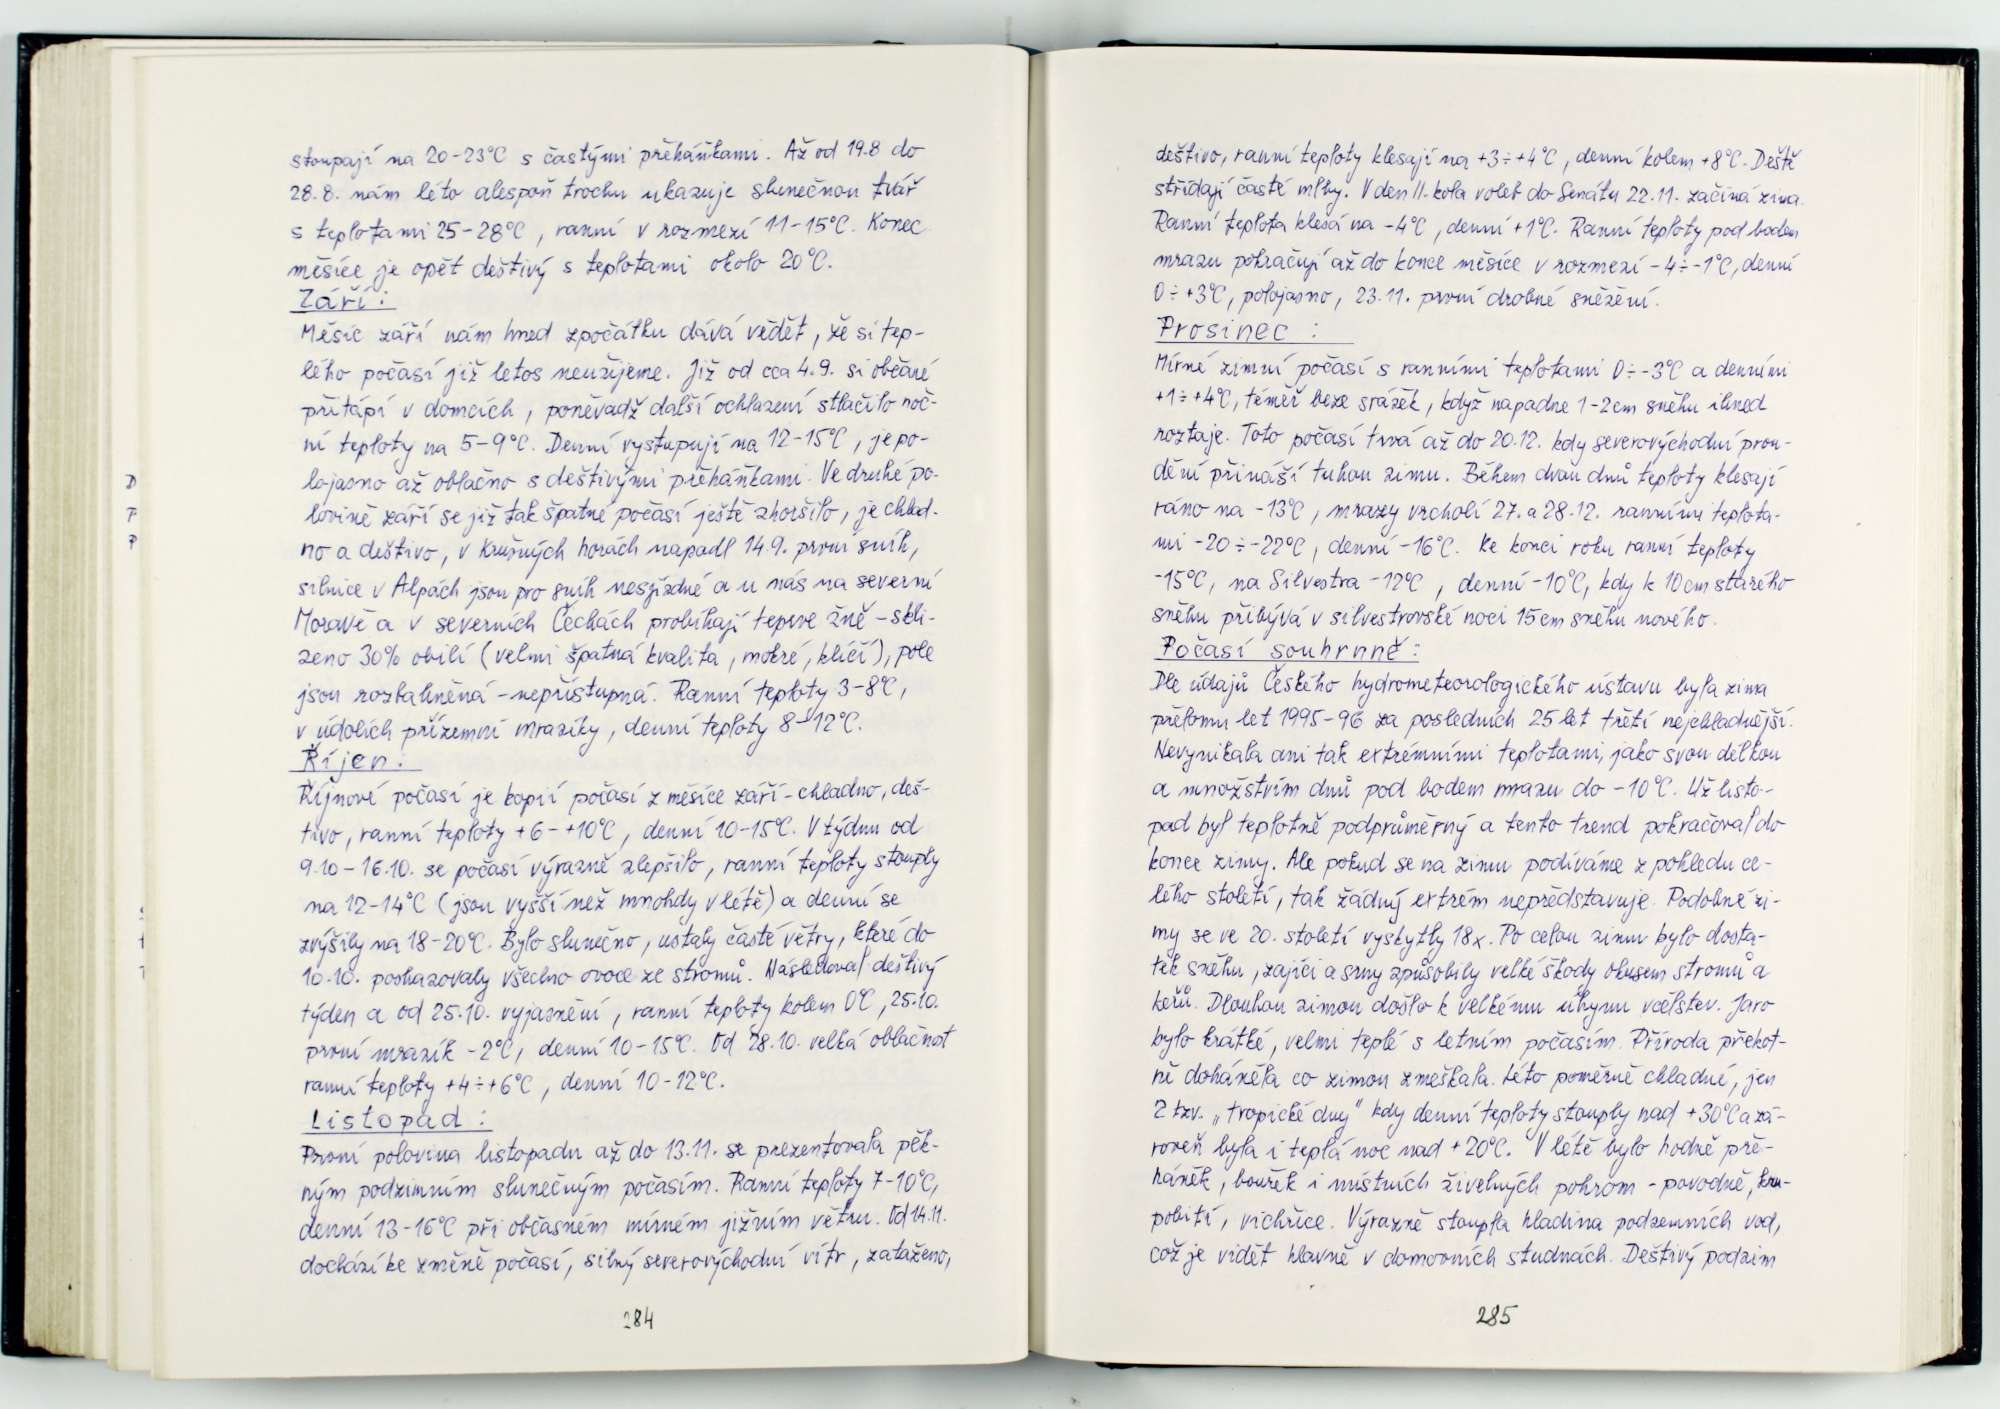 stoupají na 20-23°C s častými přeháňkami. Až od 19.8 do
28.8. nám léto alespoň trochu ukazuje slunečnou tvář
s teplotami 25-28°C, ranní v rozmezí 11-15°C. Konec
měsíce je opět deštivý s teplotami okolo 20°C.
Září:
Měsíc září nám hned zpočátku dává vědět, že si tep-
lého počasí již letos neužijeme. Již od cca 4.9. si občané
přitápí v domcích, poněvadž další ochlazení stlačilo noč-
ní teploty na 5-9°C. Denní vystupují na 12-15°C, je po-
lojasno až oblačno s deštivými přeháňkami. Ve druhé po-
lovině září se již tak špatné počasí ještě zhoršilo, je chlad-
no a deštivo, v Krušných horách napadl 14.9. první sníh,
silnice v Alpách jsou pro sníh nesjízdné a u nás na severní
Moravě a v severních Čechách probíhají teprve žně - skli-
zeno 30% obilí (velmi špatná kvalita, mokré, klíčí), pole
jsou rozbahněná - nepřístupná. Ranní teploty 3-8°C,
v údolích přízemní mrazíky, denní teploty 8-12°C.
Říjen:
Říjnové počasí je kopií počasí z měsíce září - chladno, deš-
tivo, ranní teploty +6-+10°C, denní 10-15°C. V týdnu od
9.10-16.10. se počasí výrazně zlepšilo, ranní teploty stouply
na 12-14°C (jsou vyšší než mnohdy v létě) a denní se
zvýšily na 18-20°C. Bylo slunečno, ustaly časté větry, které do
10.10. poshazovaly všechno ovoce ze stromů. Následoval deštivý
týden a od 25.10. vyjasnění, ranní teploty kolem 0°C, 25.10.
první mrazík -2°C, denní 10-15°C. Od 28.10. velká oblačnost
ranní teploty +4÷+6°C, denní 10-12°C.
Listopad:
První polovina listopadu až do 13.11. se prezentovala pěk-
ným podzimním slunečným počasím. Ranní teploty 7-10°C,
denní 13-16°C při občasném mírném jižním větru. Od 14.11.
dochází ke změně počasí, silný severovýchodní vítr, zataženo,
284
deštivo, ranní teploty klesají na +3÷+4°C, denní kolem +8°C. Deště
střídají časté mlhy. V den II. kola voleb do Senátu 22.11. začíná zima.
Ranní teplota klesá na -4°C, denní +1°C. Ranní teploty pod bodem
mrazu pokračují až do konce měsíce v rozmezí -4÷-1°C, denní
0÷+3°C, polojasno, 23.11. první drobné sněžení.
Prosinec:
Mírné zimní počasí s ranními teplotami 0÷-3°C a denními
+1÷+4°C, téměř beze srážek, když napadne 1-2cm sněhu ihned
roztaje. Toto počasí trvá až do 20.12. kdy severovýchodní prou-
dění přináší tuhou zimu. Během dvou dnů teploty klesají
ráno na -13°C, mrazy vrcholí 27. a 28.12. ranními teplota-
mi -20÷-22°C, denní -16°C. Ke konci roku ranní teploty
-15°C, na Silvestra -12°C, denní -10°C, kdy k 10cm starého
sněhu přibývá v silvestrovské noci 15cm sněhu nového.
Počasí souhrnně:
Dle údajů Českého hydrometeorologického ústavu byla zima
přelomu let 1995-96 za posledních 25 let třetí nejchladnější.
Nevynikala ani tak extrémními teplotami, jako svou délkou
a množstvím dnů pod bodem mrazu do -10°C. Už listo-
pad byl teplotně podprůměrný a tento trend pokračoval do
konce zimy. Ale pokud se na zimu podíváme z pohledu ce-
lého století, tak žádný extrém nepředstavuje. Podobné zi-
my se ve 20. století vyskytly 18x. Po celou zimu bylo dosta-
tek sněhu, zajíci a srny způsobily velké škody okusem stromů a
keřů. Dlouhou zimou došlo k velkému úhynu včelstev. Jaro
bylo krátké, velmi teplé s letním počasím. Příroda překot-
ně doháněla co zimou zmeškala. Léto poměrně chladné, jen
2 tzv. „tropické dny" kdy denní teploty stouply nad +30°C a zá-
roveň byla i teplá noc nad +20°C. V létě bylo hodně pře-
háněk, bouřek i místních živelných pohrom - povodně, kru-
pobití, vichřice. Výrazně stoupla hladina podzemních vod,
což je vidět hlavně v domovních studnách. Deštivý podzim
285